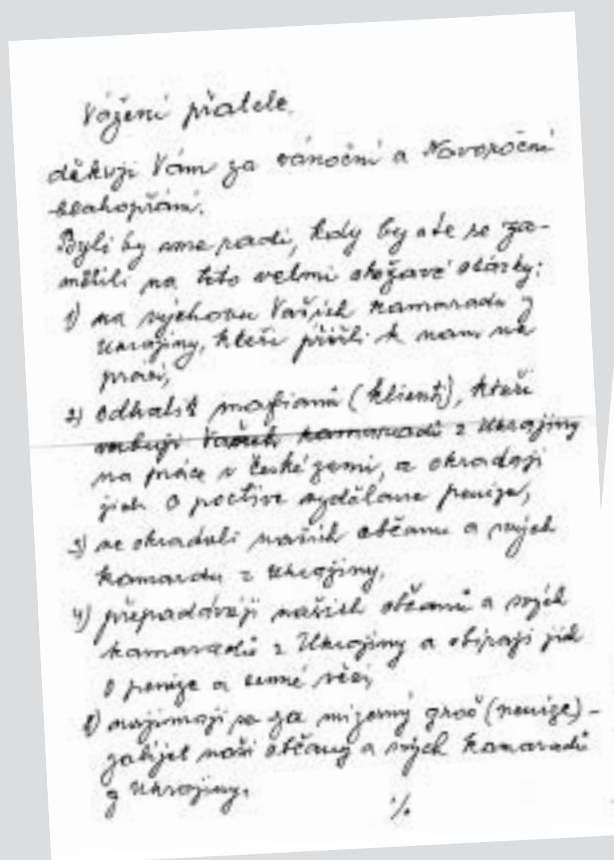 Vážení přátele,
děkuji Vám za vánoční a Novoroční
blahopřání.
Byli by sme radi, kdy by ste se za-
měřili na teto velmi otázky:
1) na výchovu Vašich kamaradu z
Ukrajiny, kteři přišli k nam na
práci,
2) odhalit mafianů (klienti), kteři
Vašich kamaradů z Ukrajiny
na práce v české zemi, a okradaji
jich o poctive vydělane penize,
3) ne okradali našich občanu a svych
kamardu z Ukrajiny,
4) přepadávaji našich občanů a svých
kamaradů z Ukrajiny a obiraji jich
o penize a cenné věci,
5) najimaji se za mizerný groš (penize) -
zabijet naši občany a svých kamaradů
z Ukrajiny.
./.